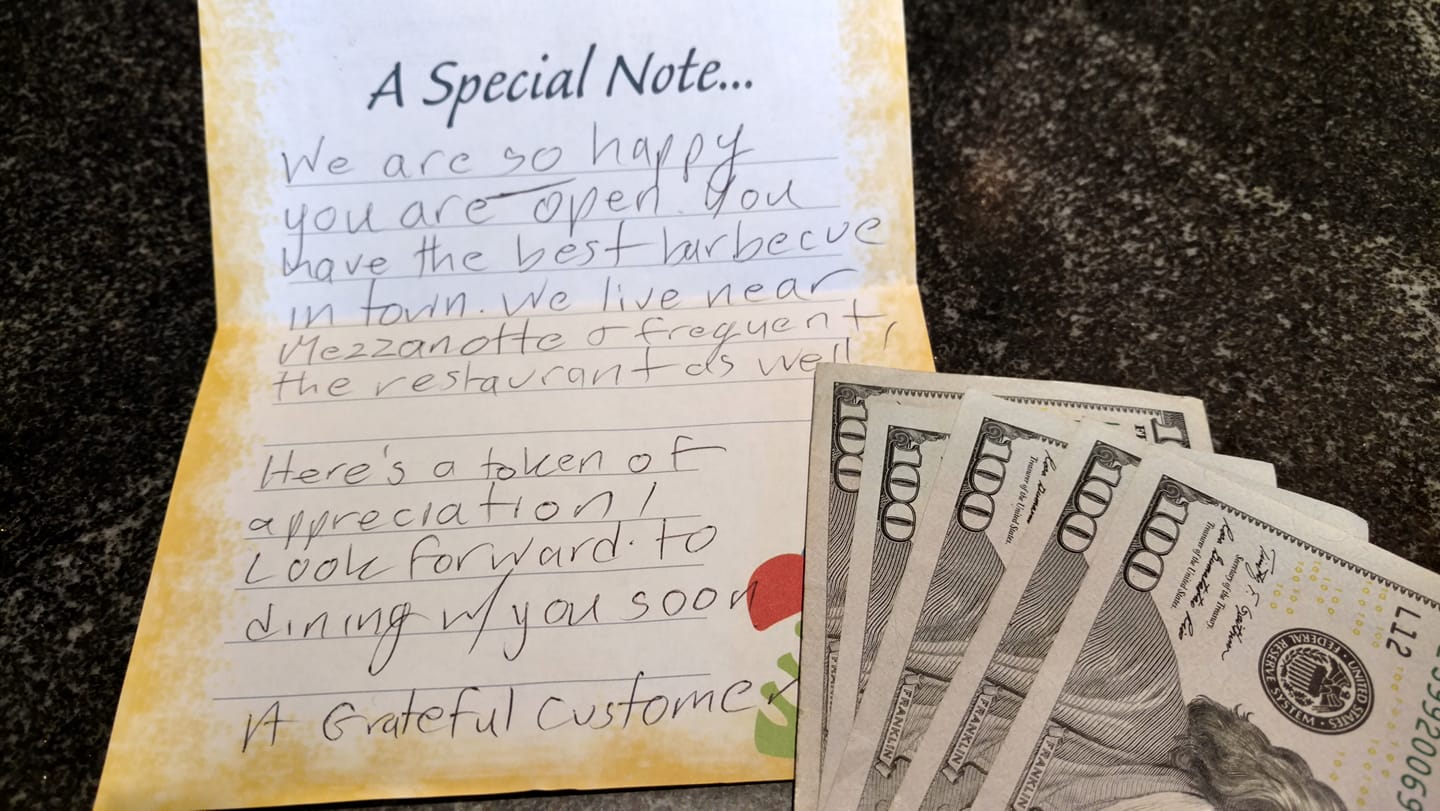 A Special Note...
We are so happy
you are open. You
have the best barbecue
in town. We live near
Mezzanotte & frequent
the restaurant as well
Here's a token of
appreciation /
Look forward to
dining w/ you soon
A Grateful Customer
100
100
100
100
100
Treasurer of the United States.
Treasurer of the United States.
Secretary of the Treasury.
L12
UNITED STATES FEDERAL RESERVE SYSTEM
FRANKLIN
FRANKLIN
FRANKLIN